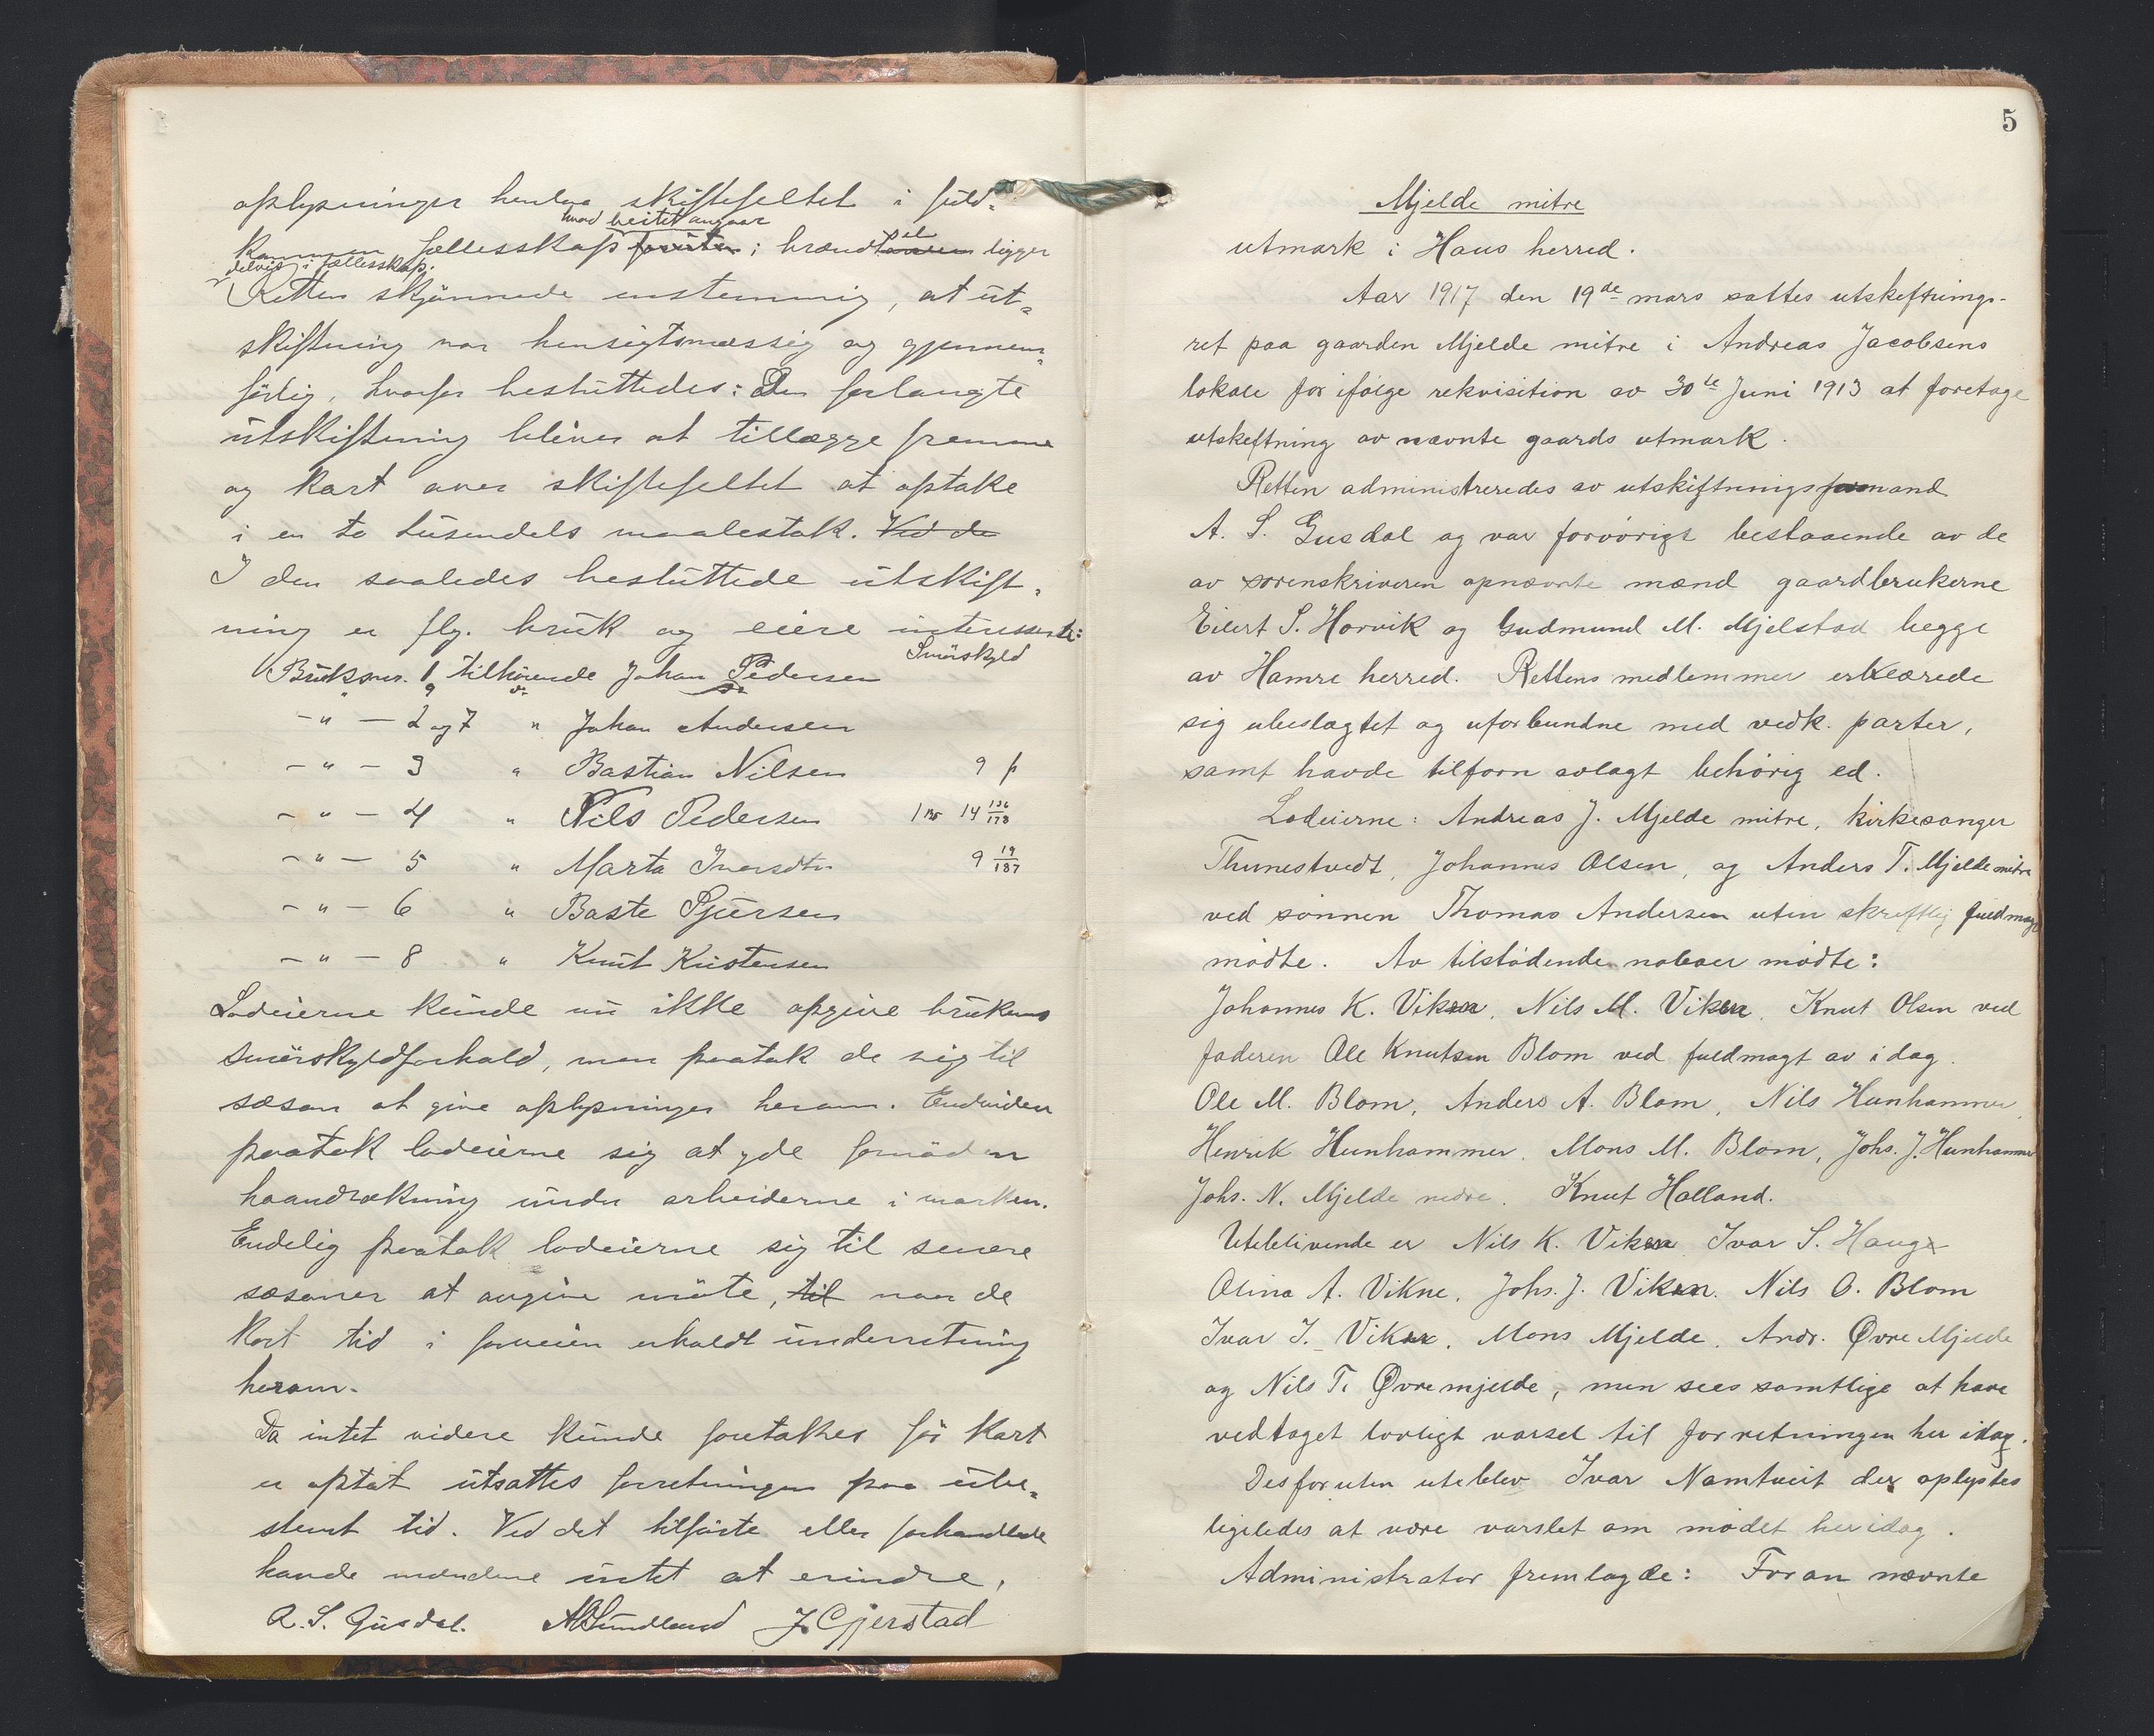 oplysninger henlaa skiftefeltet i fuld-
hvad beitet angaar
kommen fællesskap foruten; brændselen ligger
delvis i fællesskap.
Retten skjønnede enstemmig, at ut-
skiftning var hensigtsmæssig og gjennem-
förlig, hvorfor besluttedes: Den forlangte
utskiftning blive at tillægge fremme
og kart over skiftefeltet at optake
i en to tusendels maalestok. Ved de
I den saaledes besluttede utskift-
ning er flg. bruk og eiere interesserte:
Smörskyld
Bruksnr. 1 tilhørende Johan Pedersen
9
-"- 2 og 7 " Johan Andersen
-"- 3 " Bastian Nilsen 9 p
-"- 4 " Nils Pedersen 1 14 136/173
-"- 5 " Marta Iversdtr 9 19/187
-"- 6 " Baste Sjursen
-"- 8 " Knut Kristensen
Lodeierne kunde nu ikke opgive brukens
smörskyldforhold, men paatok de sig til
sæson at give oplysninger herom. Endvider
paatok lodeierne sig at yde fornöden
haandrækning under arbeiderne i marken.
Endelig paatok lodeierne sig til senere
sæsoner at avgive möte, til naar de
kort tid i forveien erholdt underretning
herom.
Da intet videre kunde foretakes för kart
er optat utsattes forretningen paa ube-
stemt tid. Ved det tilförte eller forhandlede
havde mændene intet at erindre.
A. S. Gusdal. ABSundland J. Gjerstad
5
Mjelde mitre
utmark i Haus herred.
Aar 1917 den 19de mars sattes utskiftnings-
ret paa gaarden Mjelde mitre i Andreas Jacobsens
lokale for ifølge rekvisition av 30te Juni 1913 at foretage
utskiftning av nævnte gaards utmark.
Retten administreredes av utskiftningsformand
A. S. Gusdal og var forøvrigt bestaaende av de
av sorenskriveren opnævnte mænd gaardbrukerne
Eilert S. Horvik og Gudmund M. Mjelstad begge
av Hamre herred. Rettens medlemmer erklærede
sig ubeslagtet og uforbundne med vedk. parter,
samt havde tilforn avlagt behørig ed.
Lodeierne: Andreas J. Mjelde mitre, kirkesanger
Thunestvedt, Johannes Olsen, og Anders T. Mjelde mitre
ved sønnen Thomas Andersen uten skriftlig fuldmagt
mødte. Av tilstødende naboer mødte:
Johannes K. Viken, Nils M. Viken, Knut Olsen ved
faderen Ole Knutsen Blom ved fuldmagt av idag.
Ole M. Blom, Anders A. Blom, Nils Hunhammer,
Henrik Hunhammer, Mons M. Blom, Johs. J. Hunhammer
Johs. N. Mjelde nedre. Knut Holland.
Uteblivende er Nils K. Viken, Ivar S. Hauge
Olina A. Vikne, Johs. J. Viken. Nils O. Blom
Ivar I. Viken, Mons Mjelde, Andr. Øvre Mjelde
og Nils T. Øvremjelde, men sees samtlige at have
vedtaget lovligt varsel til forretningen her idag.
Desforuten uteblev Ivar Namtveit der oplystes
ligeledes at være varslet om mødet her idag.
Administrator fremlagde: Foran nævnte